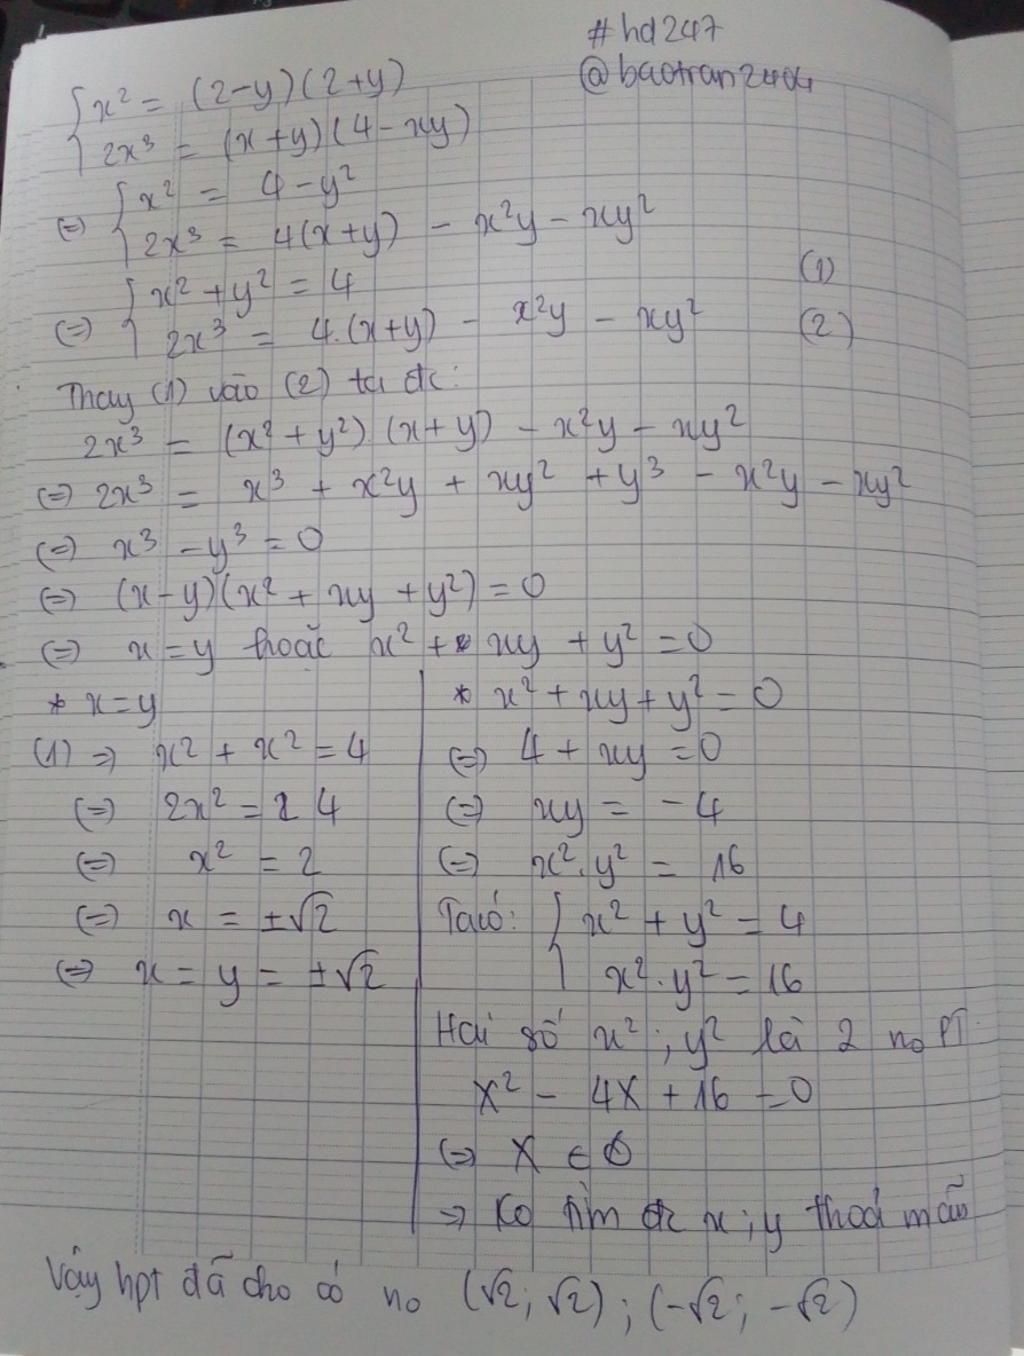 #hd247
@baotran2404
{ x² = (2-y)(2+y)
2x³ = (x+y)(4-xy)
(=) { x² = 4 - y²
2x³ = 4(x+y) - x²y - xy²
(=) { x² + y² = 4 (1)
2x³ = 4.(x+y) - x²y - xy² (2)
Thay (1) vào (2) ta đc:
2x³ = (x² + y²) (x+y) - x²y - xy²
(=) 2x³ = x³ + x²y + xy² + y³ - x²y - xy²
(=) x³ - y³ = 0
(=) (x-y)(x² + xy + y²) = 0
(=) x = y hoặc x² + xy + y² = 0
* x = y
(1) => x² + x² = 4
(=) 2x² = 4
(=) x² = 2
(=) x = ±√2
(=) x = y = ±√2
* x² + xy + y² = 0
(=) 4 + xy = 0
(=) xy = -4
(=) x².y² = 16
Ta có: { x² + y² = 4
x².y² = 16
Hai số x²; y² là 2 no PT
X² - 4X + 16 = 0
(=) X ∈ ∅
=> Ko tìm đc x; y thoả mãn
Vậy hpt đã cho có no (√2; √2); (-√2; -√2)